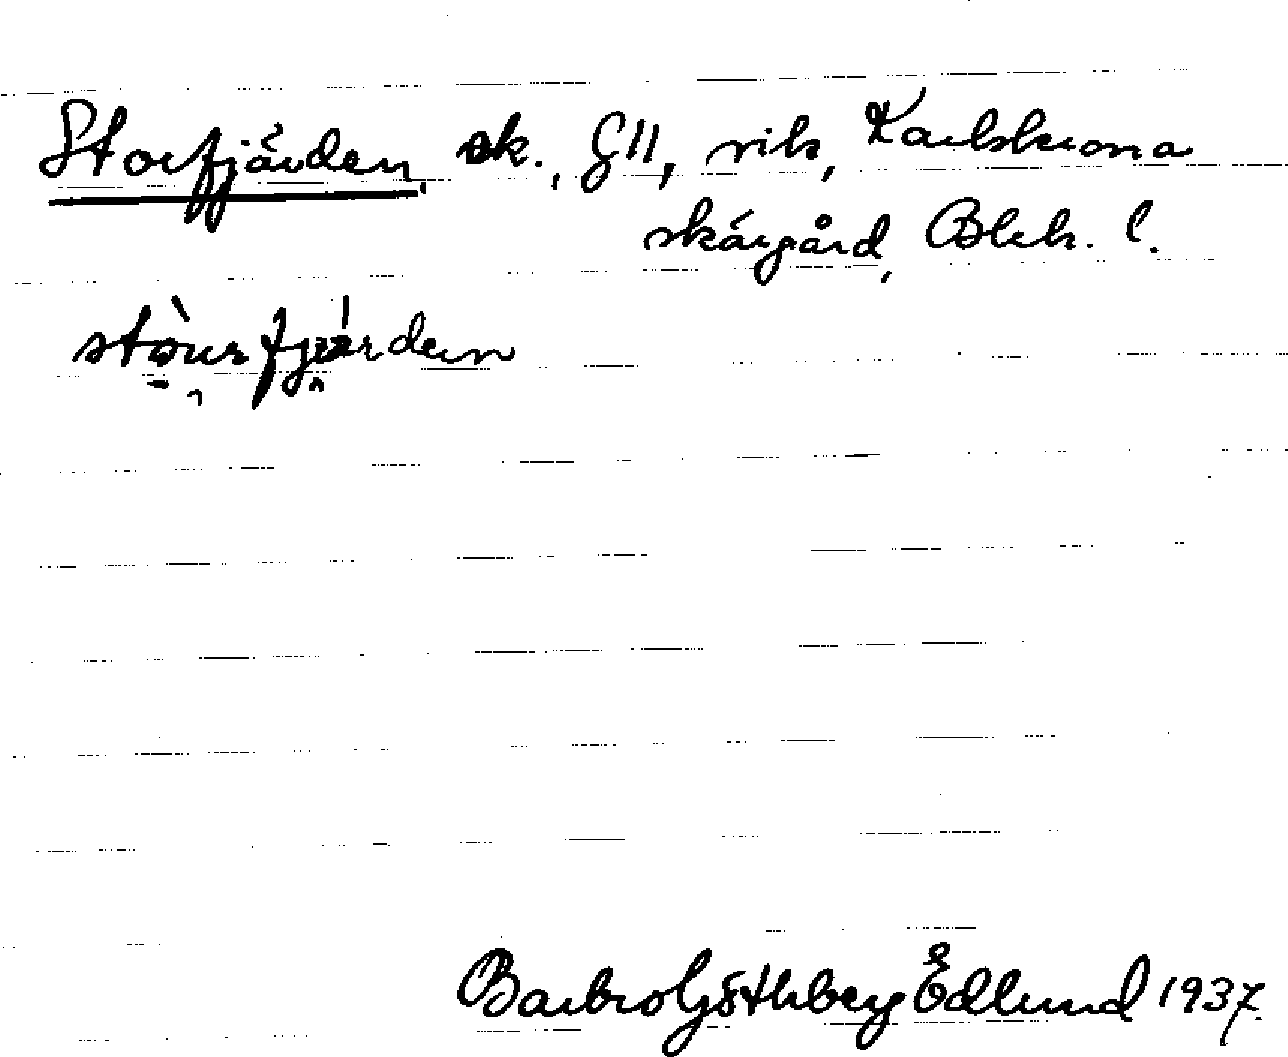 Storfjärden, sk., G11, vik, Karlskrona
skärgård, Blek. l.
Barbro Göthberg Edlund 1937.